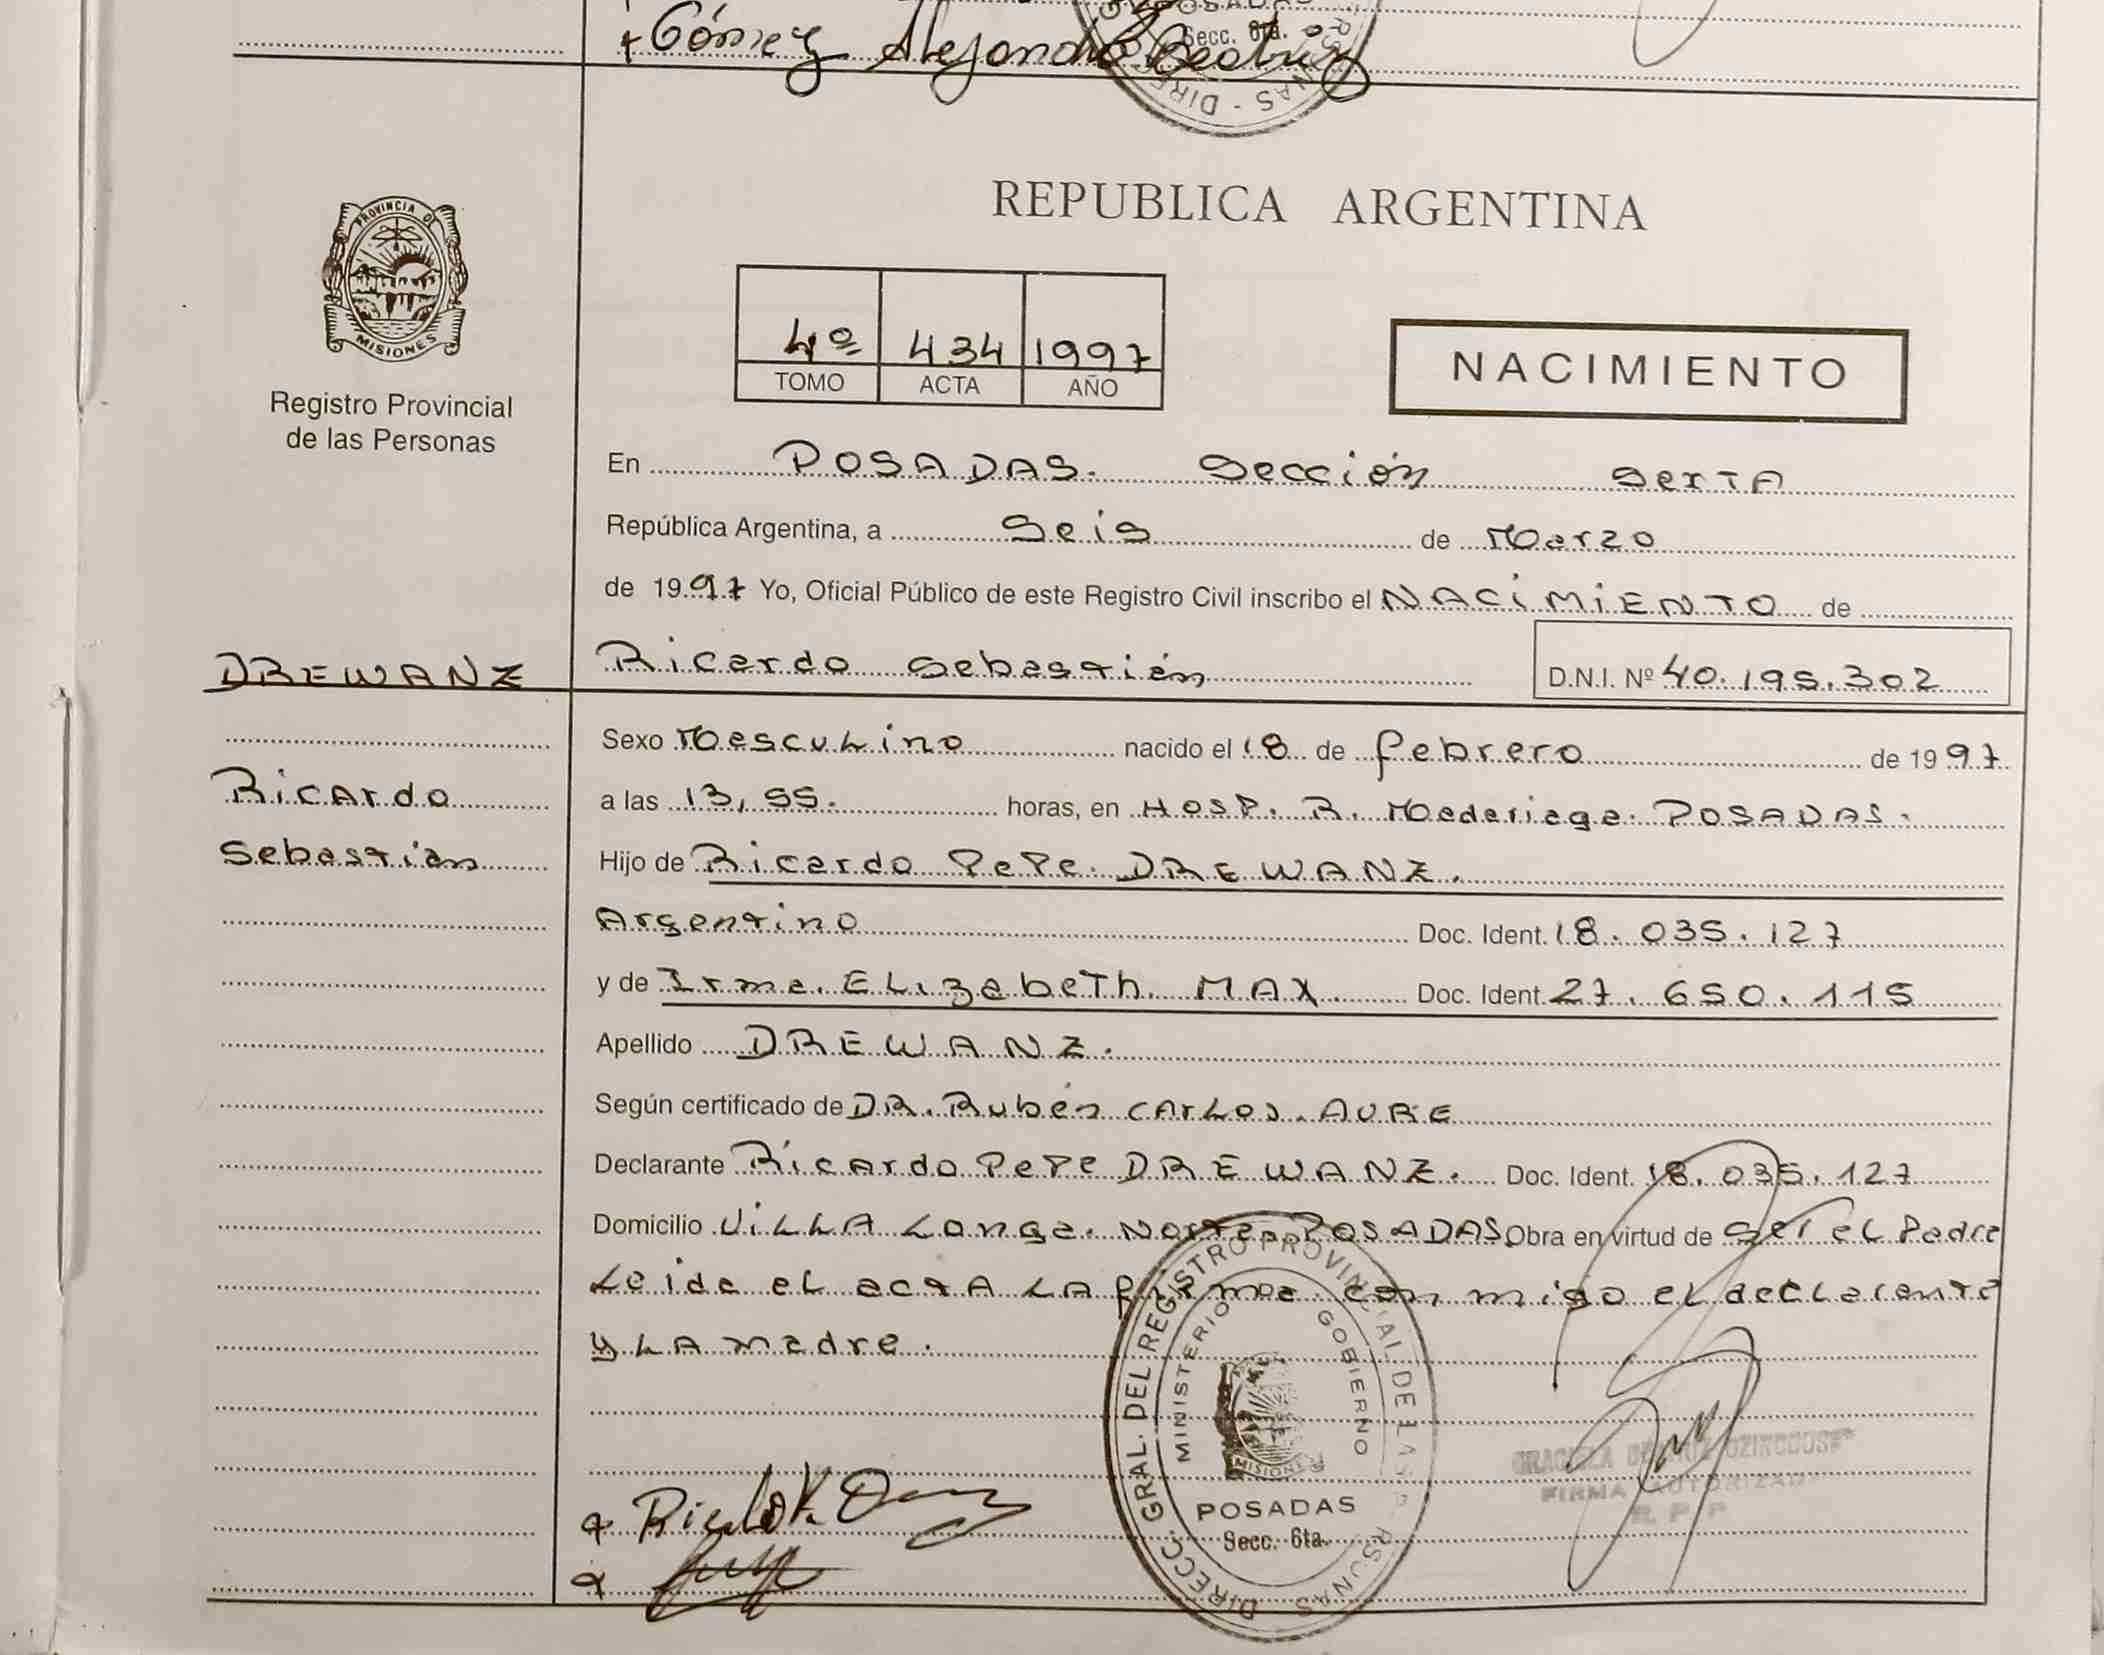 + Gómez Alejandra Beatriz
POSADAS
Secc. 6ta.
DIREC
PROVINCIA DE
MISIONES
Registro Provincial
de las Personas
REPUBLICA ARGENTINA
4º 434 1997
TOMO ACTA AÑO
NACIMIENTO
En POSADAS. Sección SexTA
República Argentina, a Seis de Marzo
de 1997 Yo, Oficial Público de este Registro Civil inscribo el NACiMiENTO de
DREWANZ Ricardo Sebastián D.N.I. Nº 40.195.302
Sexo MascuLino nacido el 18 de febrero de 1997
Ricardo
a las 13,55. horas, en Hosp. R. Madariaga. POSADAS.
Sebastián
Hijo de Ricardo PePe. DREWANZ.
Argentino Doc. Ident. 18.035.127
y de Irma. ELizabeTh. MAX. Doc. Ident. 27.650.115
Apellido DREWANZ.
Según certificado de DR. Rubén CArLos. AURE
Declarante Ricardo PePe DREWANZ. Doc. Ident. 18.035.127
Domicilio ViLLA Longa. Norte. POSADAS. Obra en virtud de Ser eL Padre
Leida eL acTA LA firma con migo eL decLarante
y LA madre.
DIRECC. GRAL. DEL REGISTRO PROVINCIAL DE LAS PERSONAS
MINISTERIO GOBIERNO
MISIONES
POSADAS
Secc. 6ta.
GRACIELA
FIRMA AUTORIZADA
R. P. P.